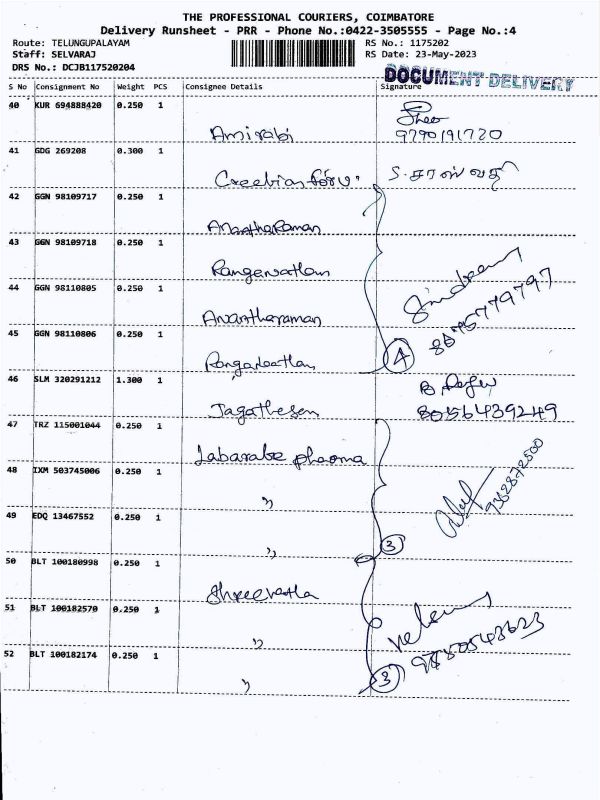 THE PROFESSIONAL COURIERS, COIMBATORE
Delivery Runsheet - PRR - Phone No.:0422-3505555 - Page No.:4
Route: TELUNGUPALAYAM RS No.: 1175202
Staff: SELVARAJ RS Date: 23-May-2023
DRS No.: DCJB117520204
DOCUMENT DELIVERY
S No Consignment No Weight PCS Consignee Details Signature
40 KUR 694888420 0.250 1
Amirabi 9790191720
41 GDG 269208 0.300 1
S. சரஸ்வதி
42 GGN 98109717 0.250 1
Anantharaman
43 GGN 98109718 0.250 1
44 GGN 98110805 0.250 1
Anantharaman 8675779797
45 GGN 98110806 0.250 1
4
46 SLM 320291212 1.300 1
Jagathesen 8056439249
47 TRZ 115001044 0.250 1
Labarabe pharma
48 IXM 503745006 0.250 1
" 9362872500
49 EDQ 13467552 0.250 1
" 3
50 BLT 100180998 0.250 1
Shreevatha
51 BLT 100182570 0.250 1
"
52 BLT 100182174 0.250 1
" 3